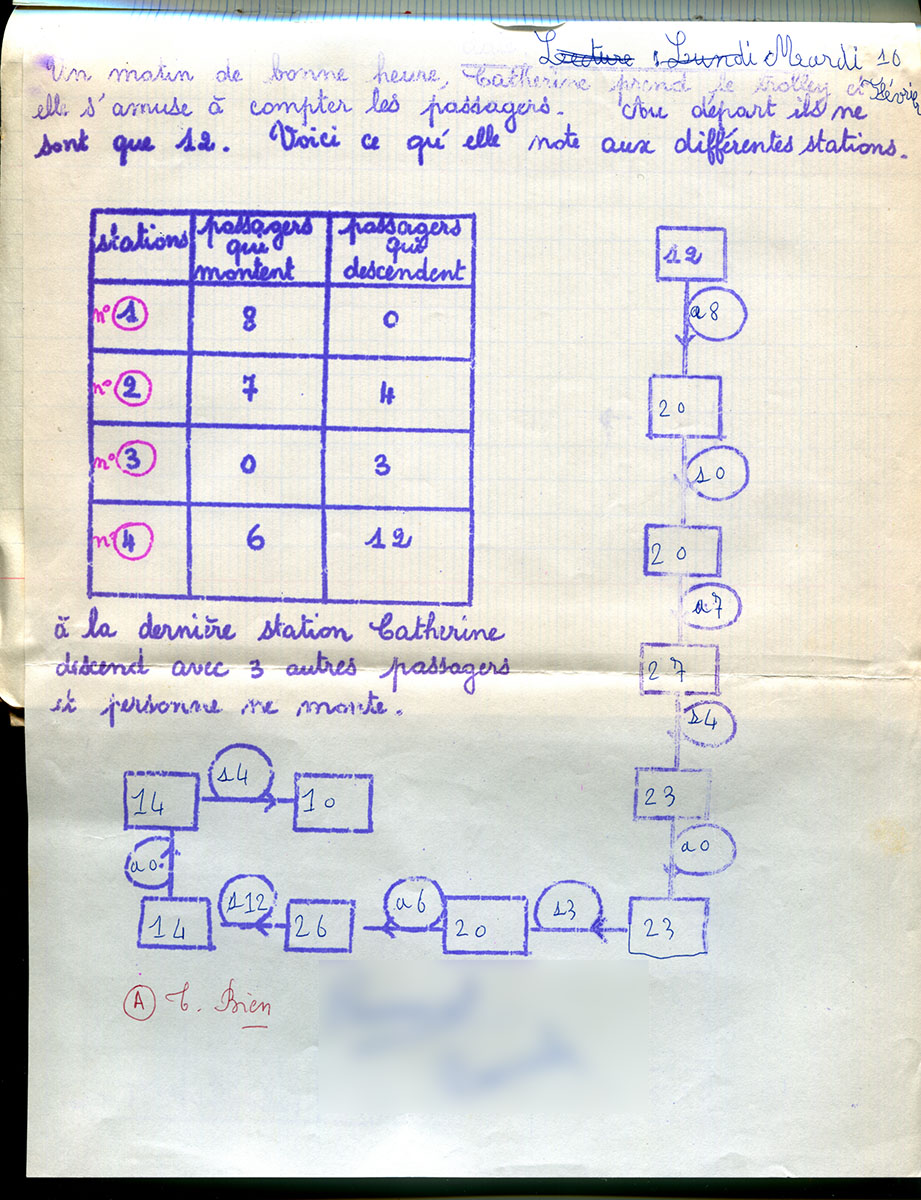 Lecture : Lundi Mardi 10
Février
Un matin de bonne heure, Catherine prend le trolley et
elle s'amuse à compter les passagers. Au départ ils ne
sont que 12. Voici ce qu'elle note aux différentes stations.
stations passagers qui montent passagers qui descendent
n° 1 8 0
n° 2 7 4
n° 3 0 3
n° 4 6 12
à la dernière station Catherine
descend avec 3 autres passagers
et personne ne monte.
12
a8
20
s0
20
a7
27
s4
23
a0
23
s3
20
a6
26
s12
14
a0
14
s4
10
A T. Bien